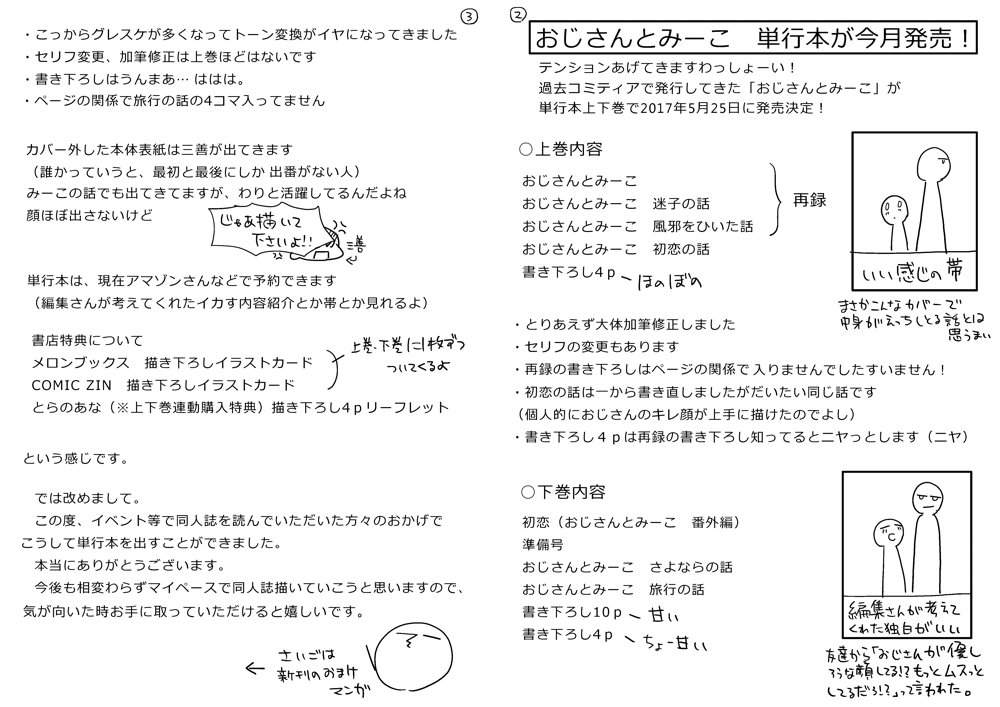 ②
おじさんとみーこ　単行本が今月発売！
テンションあげてきますわっしょーい！
過去コミティアで発行してきた「おじさんとみーこ」が
単行本上下巻で2017年5月25日に発売決定！
○上巻内容
おじさんとみーこ
おじさんとみーこ　迷子の話
おじさんとみーこ　風邪をひいた話
おじさんとみーこ　初恋の話
再録
書き下ろし4ｐ
ほのぼの
いい感じの帯
まさかこんなカバーで
中身がえっちしとる話とは
思うまい
・とりあえず大体加筆修正しました
・セリフの変更もあります
・再録の書き下ろしはページの関係で入りませんでしたすいません！
・初恋の話は一から書き直しましたがだいたい同じ話です
（個人的におじさんのキレ顔が上手に描けたのでよし）
・書き下ろし４ｐは再録の書き下ろし知ってるとニヤっとします（ニヤ）
○下巻内容
初恋（おじさんとみーこ　番外編）
準備号
おじさんとみーこ　さよならの話
おじさんとみーこ　旅行の話
書き下ろし10ｐ
甘い
書き下ろし4ｐ
ちょー甘い
編集さんが考えて
くれた独白がいい
友達から「おじさんが優し
そうな顔してる!?もっとムスっと
してるだろ!?」って言われた。
③
・こっからグレスケが多くなってトーン変換がイヤになってきました
・セリフ変更、加筆修正は上巻ほどはないです
・書き下ろしはうんまあ… ははは。
・ページの関係で旅行の話の4コマ入ってません
カバー外した本体表紙は三善が出てきます
（誰かっていうと、最初と最後にしか出番がない人）
みーこの話でも出てきてますが、わりと活躍してるんだよね
顔ほぼ出さないけど
じゃあ描いて
下さいよ!!
三善
単行本は、現在アマゾンさんなどで予約できます
（編集さんが考えてくれたイカす内容紹介とか帯とか見れるよ）
書店特典について
メロンブックス　描き下ろしイラストカード
COMIC ZIN　描き下ろしイラストカード
上巻・下巻に1枚ずつ
ついてくるよ
とらのあな（※上下巻連動購入特典）描き下ろし4ｐリーフレット
という感じです。
では改めまして。
この度、イベント等で同人誌を読んでいただいた方々のおかげで
こうして単行本を出すことができました。
本当にありがとうございます。
今後も相変わらずマイペースで同人誌描いていこうと思いますので、
気が向いた時お手に取っていただけると嬉しいです。
さいごは
新刊のおまけ
マンガ